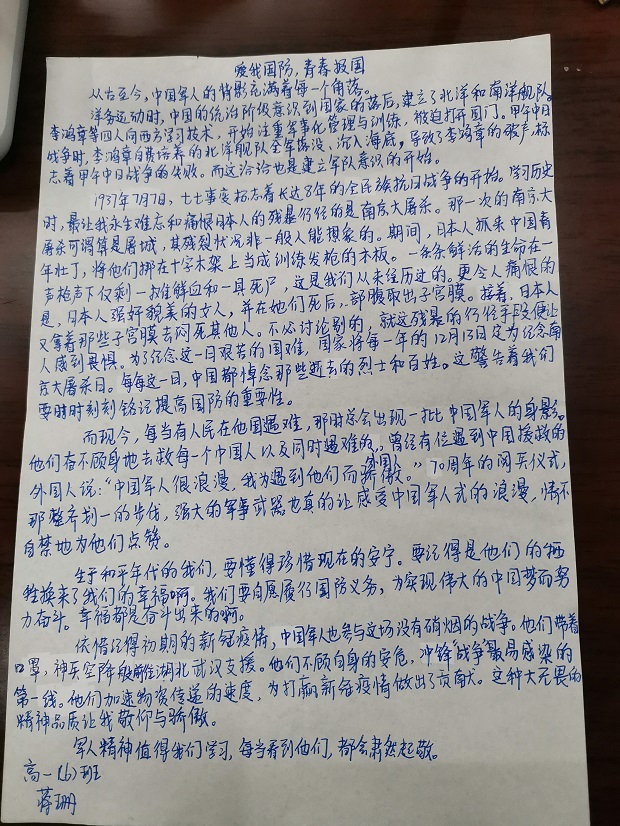 爱我国防,青春报国
从古至今,中国军人的背影充满着每一个角落。
洋务运动时,中国的统治阶级意识到国家的落后,建立了北洋和南洋舰队。
李鸿章等四人向西方学习技术,开始注重军事化管理与训练,被迫打开国门。甲午中日
战争时,李鸿章自费培养的北洋舰队全军落没、沉入海底,导致了李鸿章的破产,标
志着甲午中日战争的失败。而这洽洽也是建立军队意识的开始。
1937年7月7日,七七事变标志着长达8年的全民族抗日战争的开始。学习历史
时,最让我永生难忘和痛恨日本人的残暴行径的是南京大屠杀。那一次的南京大
屠杀可谓算是屠城,其残裂状况非一般人能想象的。期间,日本人抓来中国青
年壮丁,将他们绑在十字木架上当成训练发枪的木板。一条条鲜活的生命在一
声枪声下仅剩一摊鲜血和一具死尸,这是我们从未经历过的。更令人痛恨的
是,日本人强奸貌美的女人,并在她们死后,部腹取出子宫膜。接着,日本人
又拿着那些子宫膜去闷死其他人。不必讨论别的,就这残暴的行径手段便让
人感到畏惧。为了纪念这一日艰苦的国难,国家将每一年的12月13日定为纪念南
京大屠杀日。每每这一日,中国都悼念那些逝去的烈士和百姓。这警告着我们
要时时刻刻铭记提高国防的重要性。
而现今,每当有人民在他国遇难,那时总会出现一批中国军人的身影。
他们奋不顾身地去救每一个中国人以及同时遇难的外国人,曾经有位遇到中国援救的
外国人说:“中国军人很浪漫,我为遇到他们而骄傲。”70周年的阅兵仪式,
那整齐划一的步伐,强大的军事武器也真的让感受中国军人式的浪漫,情不
自禁地为他们点赞。
生于和平年代的我们,要懂得珍惜现在的安宁。要记得是他们的牺
牲换来了我们的幸福啊。我们要自愿履行国防义务,为实现伟大的中国梦而努
力奋斗。幸福都是奋斗出来的啊。
依惜记得初期的新冠疫情,中国军人也参与这场没有硝烟的战争。他们带着
口罩,神兵空降般前往湖北武汉支援。他们不顾自身的安危,冲锋战争最易感染的
第一线。他们加速物资传递的速度,为打赢新冠疫情做出了贡献。这种大无畏的
精神品质让我敬仰与骄傲。
军人精神值得我们学习,每当看到他们,都会肃然起敬。
高一(6)班
蒋珊